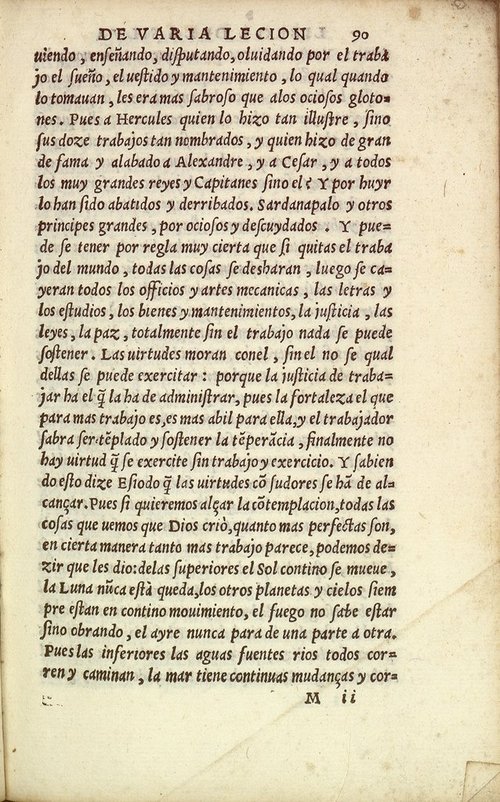 DE VARIA LECION 90
uiendo, enseñando, disputando, oluidando por el traba
jo el sueño, el uestido y mantenimiento, lo qual quando
lo tomauan, les era mas sabroso que alos ociosos gloto=
nes. Pues a Hercules quien lo hizo tan illustre, sino
sus doze trabajos tan nombrados, y quien hizo de gran
de fama y alabado a Alexandre, y a Cesar, y a todos
los muy grandes reyes y Capitanes sino el? Y por huyr
lo han sido abatidos y derribados. Sardanapalo y otros
principes grandes, por ociosos y descuydados. Y pue=
de se tener por regla muy cierta que si quitas el traba
jo del mundo, todas las cosas se desharan, luego se ca=
yeran todos los officios y artes mecanicas, las letras y
los estudios, los bienes y mantenimientos, la justicia, las
leyes, la paz, totalmente sin el trabajo nada se puede
sostener. Las uirtudes moran conel, sin el no se qual
dellas se puede exercitar: porque la justicia de traba=
jar ha el q̃ la ha de administrar, pues la fortaleza el que
para mas trabajo es, es mas abil para ella, y el trabajador
sabra ser tẽplado y sostener la tẽperãcia, finalmente no
hay uirtud q̃ se exercite sin trabajo y exercicio. Y sabien
do esto dize Esiodo q̃ las uirtudes cõ sudores se hã de al=
cançar. Pues si quieremos alçar la cõtemplacion, todas las
cosas que uemos que Dios criò, quanto mas perfectas son,
en cierta manera tanto mas trabajo parece, podemos de=
zir que les dio: delas superiores el Sol contino se mueue,
la Luna nũca està queda, los otros planetas y cielos siem
pre estan en contino mouimiento, el fuego no sabe estar
sino obrando, el ayre nunca para de una parte a otra.
Pues las inferiores las aguas fuentes rios todos cor=
ren y caminan, la mar tiene continuas mudanças y cor=
M ii